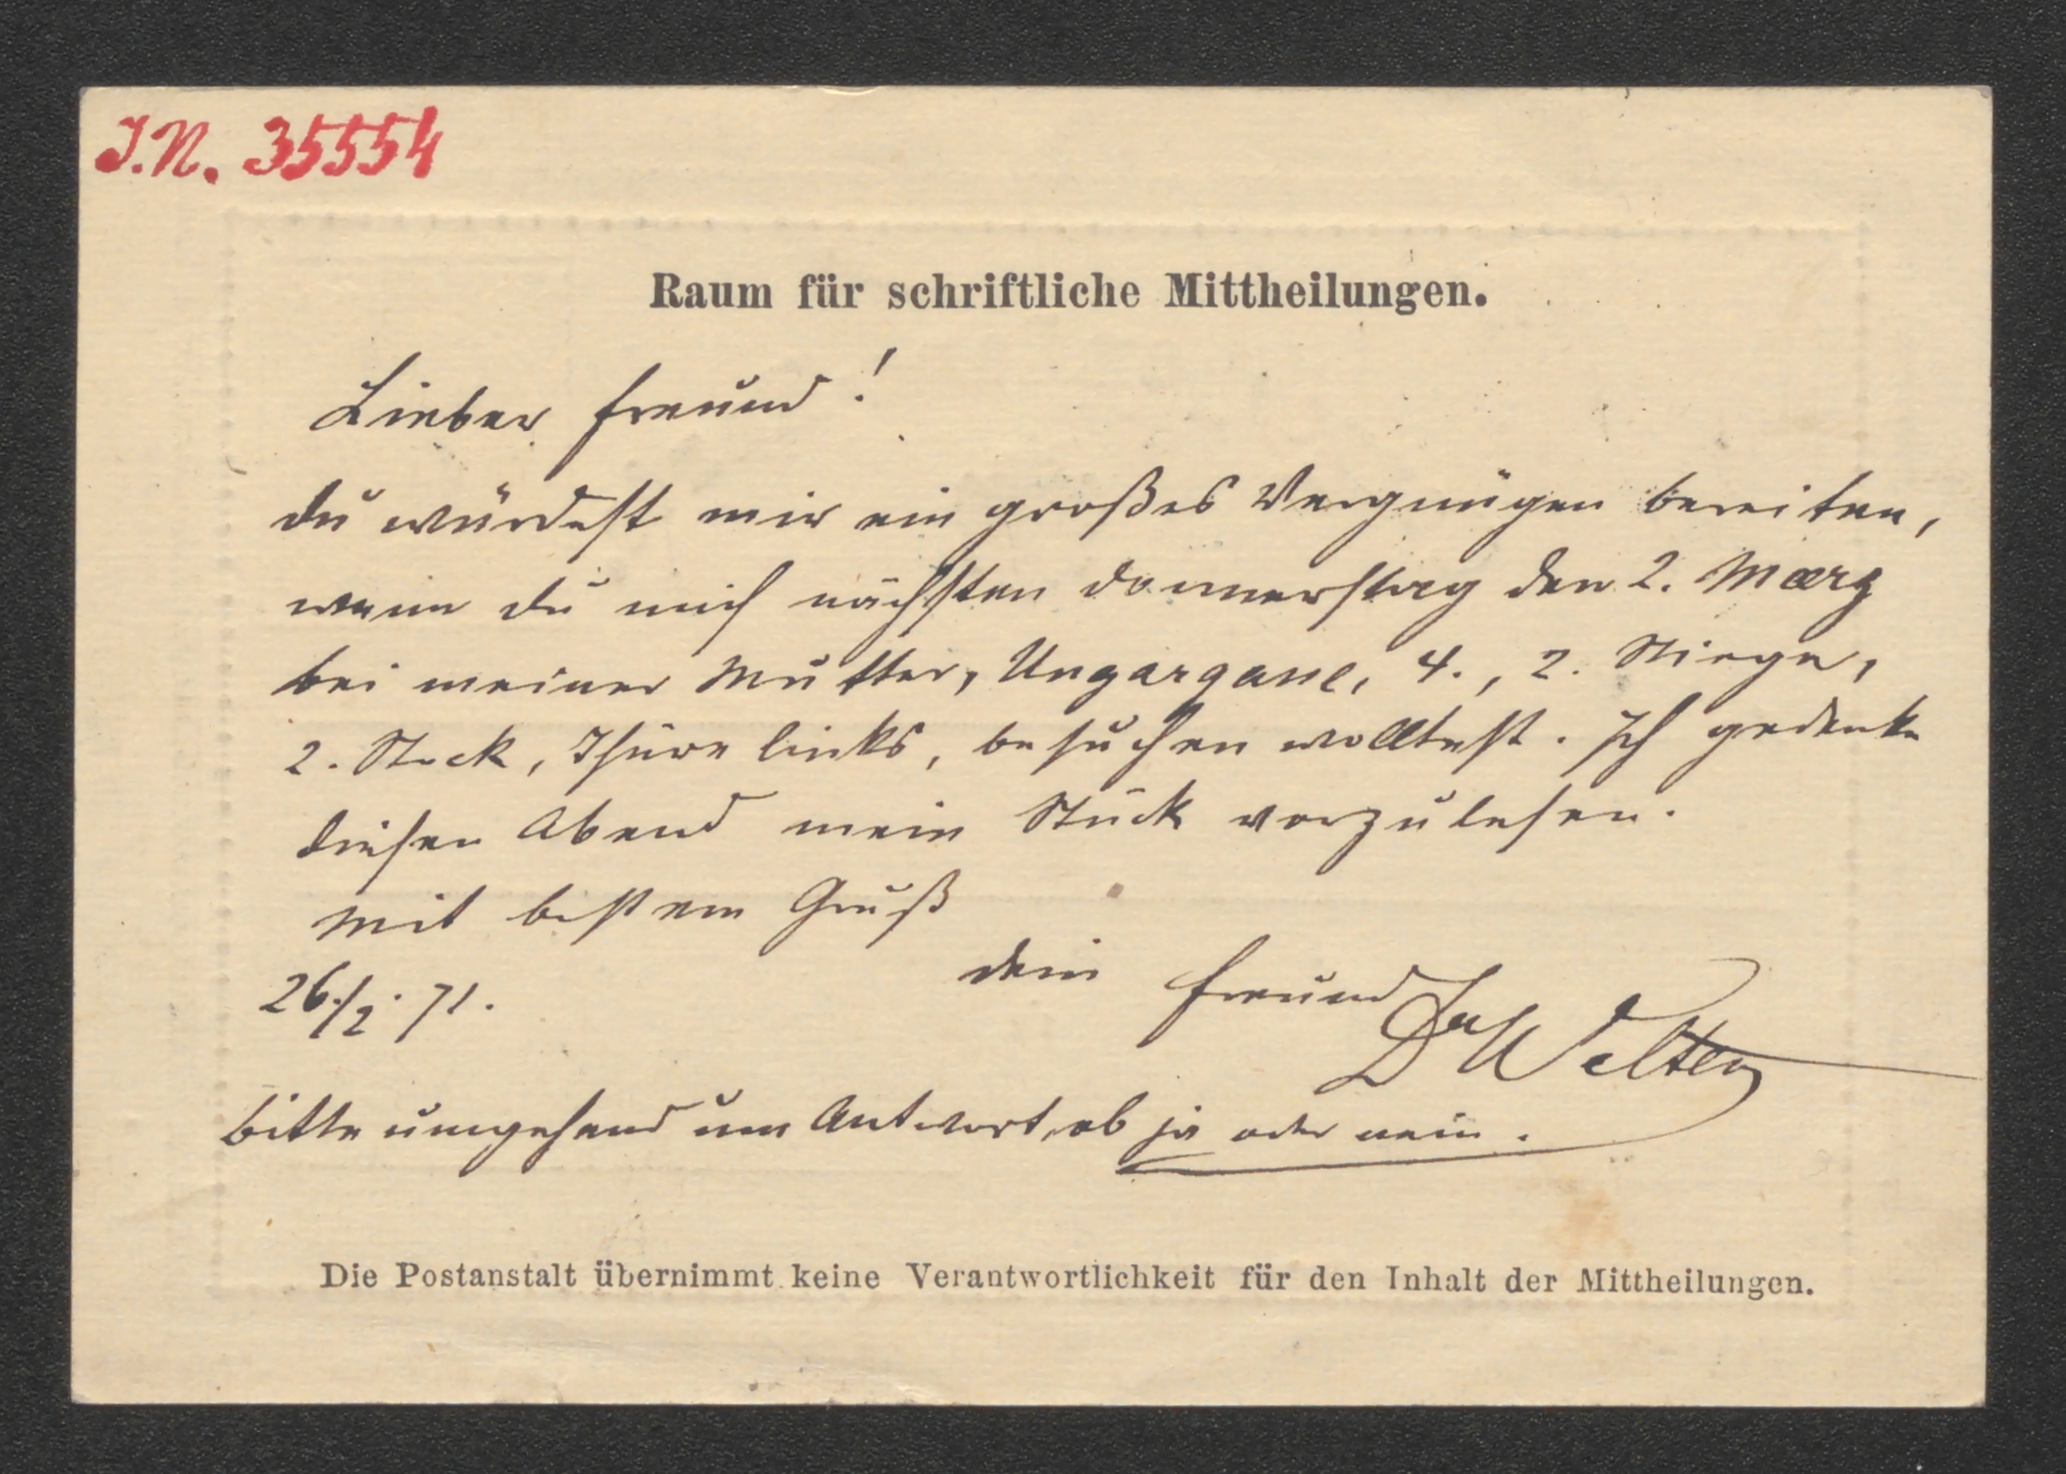 I.N. 35554
Raum für schriftliche Mittheilungen.
Lieber Freund!
du würdest mir ein großes Vergnügen bereiten,
wenn du mich nächsten Donnerstag den 2. Maerz
bei meiner Mutter, Ungargasse, 4., 2. Stiege,
2. Stock, Thüre links, besuchen wolltest. Ich gedenke
diesen Abend mein Stück vorzulesen.
Mit bestem Gruß
dein Freund
26./2. 71.
Dr Welten
Bitte umgehend um Antwort, ob ja oder nein.
Die Postanstalt übernimmt keine Verantwortlichkeit für den Inhalt der Mittheilungen.